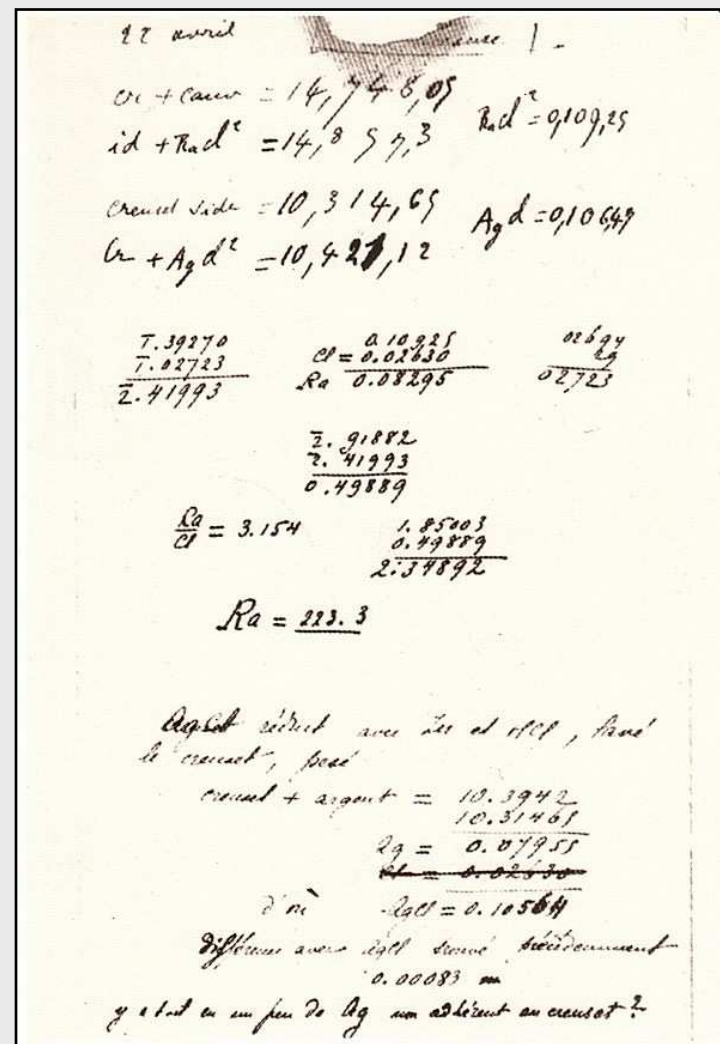 22 avril 1 -
cr + couv = 14,748,05
id + RaCl² = 14,857,3 RaCl² = 0,109,25
creuset vide = 10,314,65
Cr + AgCl² = 10,421,12 AgCl = 0,10647
1.39270 0.10925 02694
1.02723 Cl = 0.02630 29
2.41993 Ra 0.08295 02723
2.91882
2.41993
0.49889
Ra/Cl = 3.154 1.85003
0.49889
2.34892
Ra = 223.3
AgCl réduit avec Zn et HCl, lavé
le creuset, pesé
creuset + argent = 10.3942
10.31465
Ag = 0.07955
Cl = 0.02630
d'où AgCl = 0.10564
différence avec AgCl trouvé précédemment
0.00083
y a-t-il eu un peu de Ag non adhérent au creuset ?